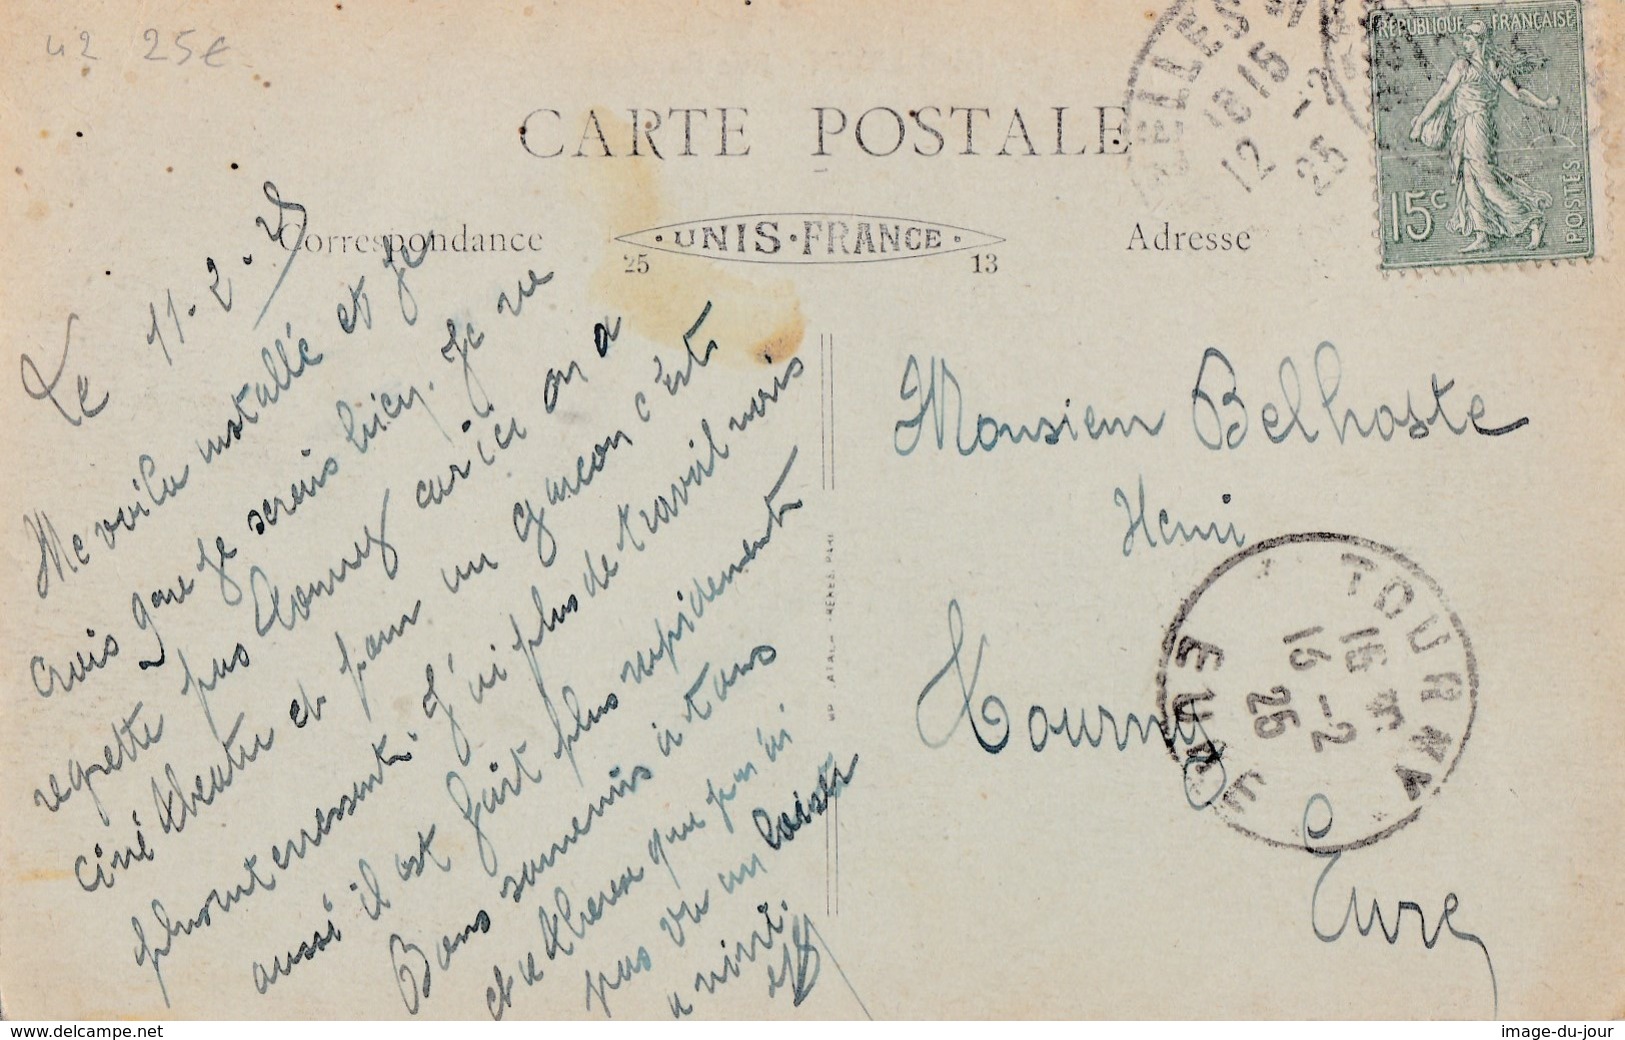 42 25€
CARTE POSTALE
Correspondance
UNIS-FRANCE
25 13
Adresse
RÉPUBLIQUE FRANÇAISE
15c
POSTES
18 15
12 -2
25
Le 11-2-25
Me voila installé et je
crois que je serais bien. Je ne
regrette pas Tourny car ici on a
ciné theatre et pour un garçon c'est
plus interressant. J'ai plus de travail mais
aussi il est fait plus rapidement
Bons souvenirs à tous
et a Therese que j'ai
pas vu en
a
Monsieur Belhoste
Henri
Tourny
Eure
TOURNY
16
16 -2
25
EURE
www.delcampe.net
image-du-jour